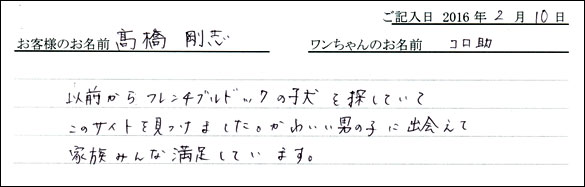 ご記入日 2016年 2月 10日
お客様のお名前 髙橋 剛志 ワンちゃんのお名前 コロ助
以前からフレンチブルドックの子犬を探していて
このサイトを見つけました。かわいい男の子に出会えて
家族みんな満足しています。